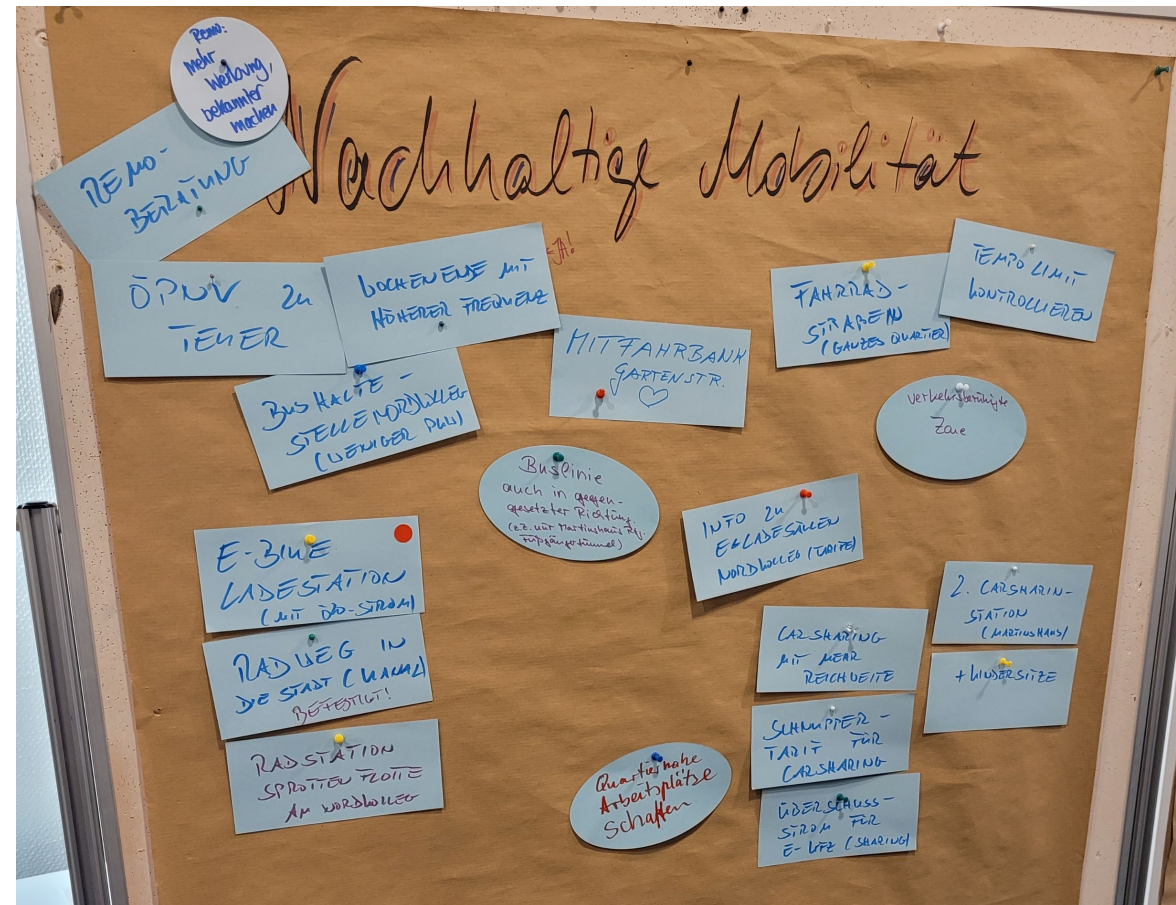 Remo:
mehr
Werbung,
bekannter
machen
REMO-
BERATUNG
Nachhaltige Mobilität
ÖPNV zu
TEUER
WOCHENENDE MIT
HÖHERER FREQUENZ
← JA!
BUSHALTE-
STELLE NORDKOLLEG
(WENIGER PKW)
MITFAHRBANK
GARTENSTR.
♡
FAHRRAD-
STRAßEN
(GANZES QUARTIER)
TEMPO LIMIT
KONTROLLIEREN
verkehrsberuhigte
Zone
Buslinie
auch in gegen-
gesetzter Richtung.
(z.Z. nur Martinshaus
Fußgängertunnel)
INFO ZU
E-LADESÄULEN
NORDKOLLEG (TARIFE)
E-BIKE
LADESTATION
(MIT ÖKO-STROM)
RADWEG IN
DIE STADT (KANAL)
BEFESTIGT!
RADSTATION
SPROTTENFLOTTE
AM NORDKOLLEG
Quartiersnahe
Arbeitsplätze
schaffen
CARSHARING
MIT MEHR
REICHWEITE
SCHNUPPER-
TARIF FÜR
CARSHARING
ÜBERSCHUSS-
STROM FÜR
E-KFZ (SHARING)
2. CARSHARIN-
STATION
(MARTINSHAUS)
+ KINDERSITZE